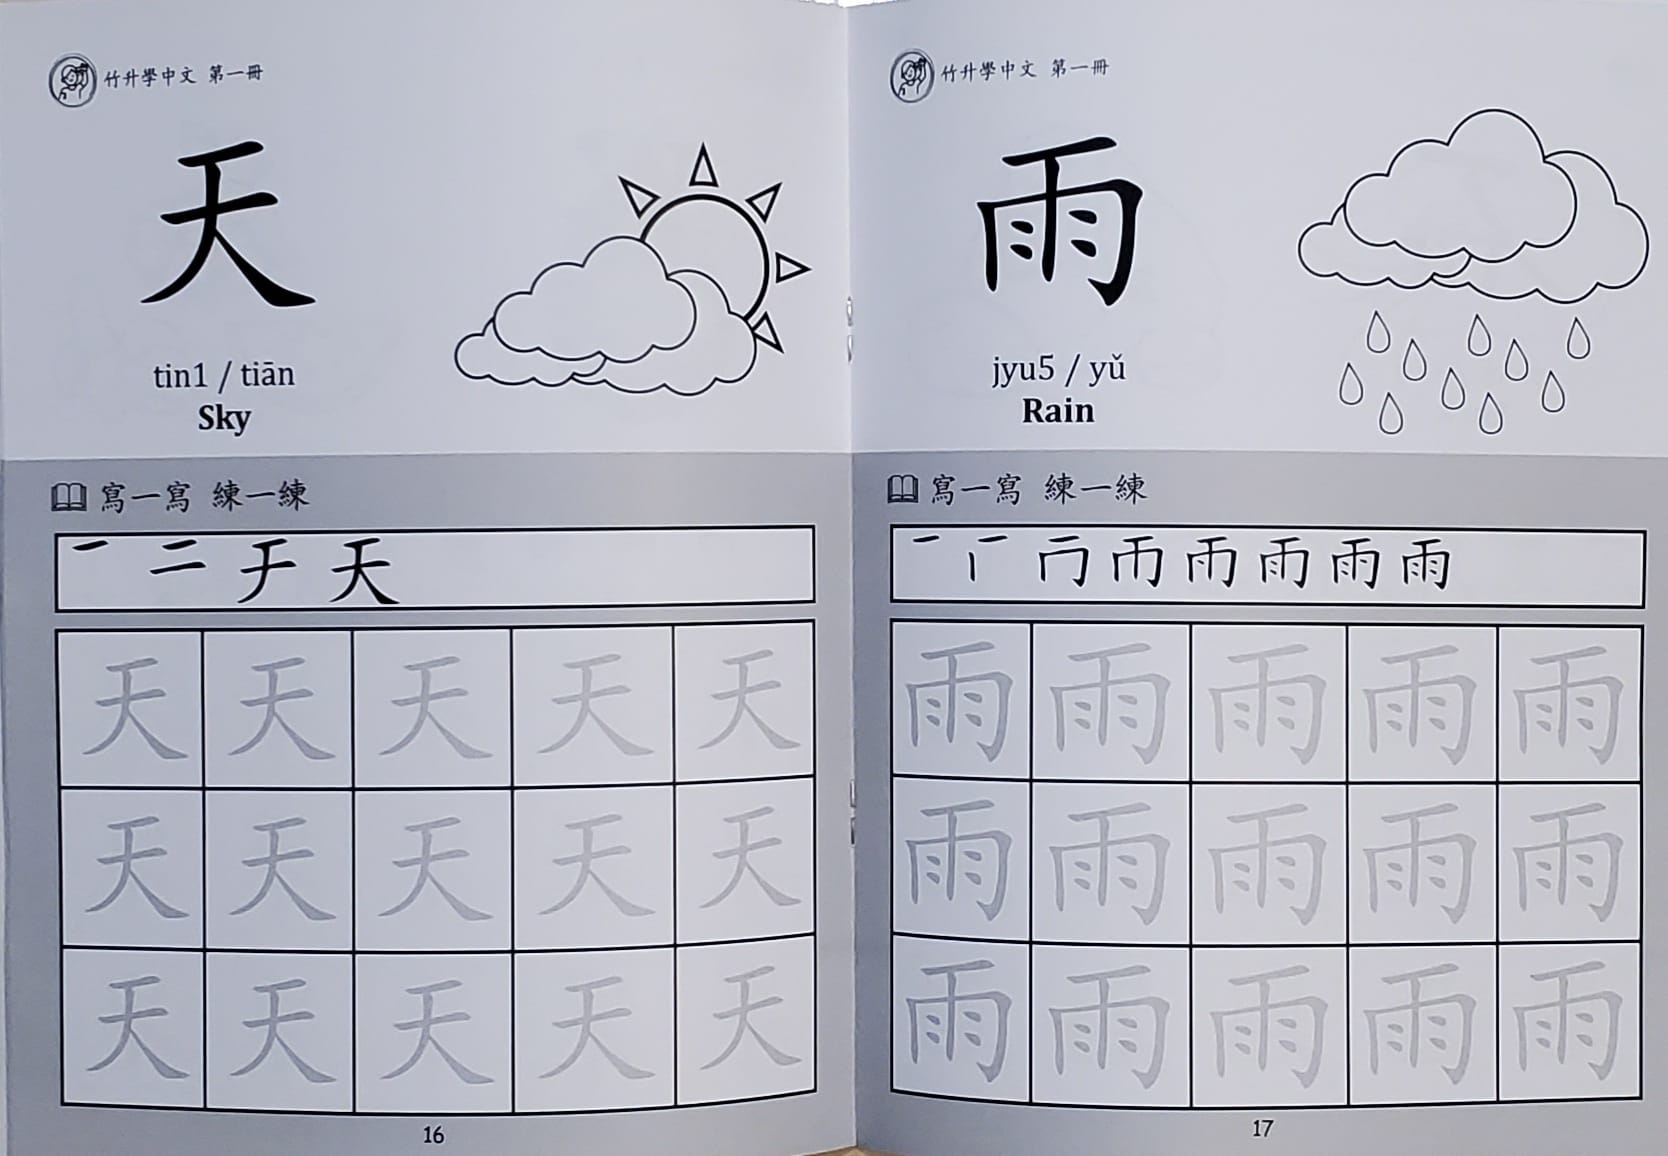 竹升學中文 第一冊
天
tin1 / tiān
Sky
寫一寫 練一練
㇐ 二 チ 天
天 天 天 天 天
天 天 天 天 天
天 天 天 天 天
16
竹升學中文 第一冊
雨
jyu5 / yǔ
Rain
寫一寫 練一練
雨
雨 雨 雨 雨 雨
雨 雨 雨 雨 雨
雨 雨 雨 雨 雨
17